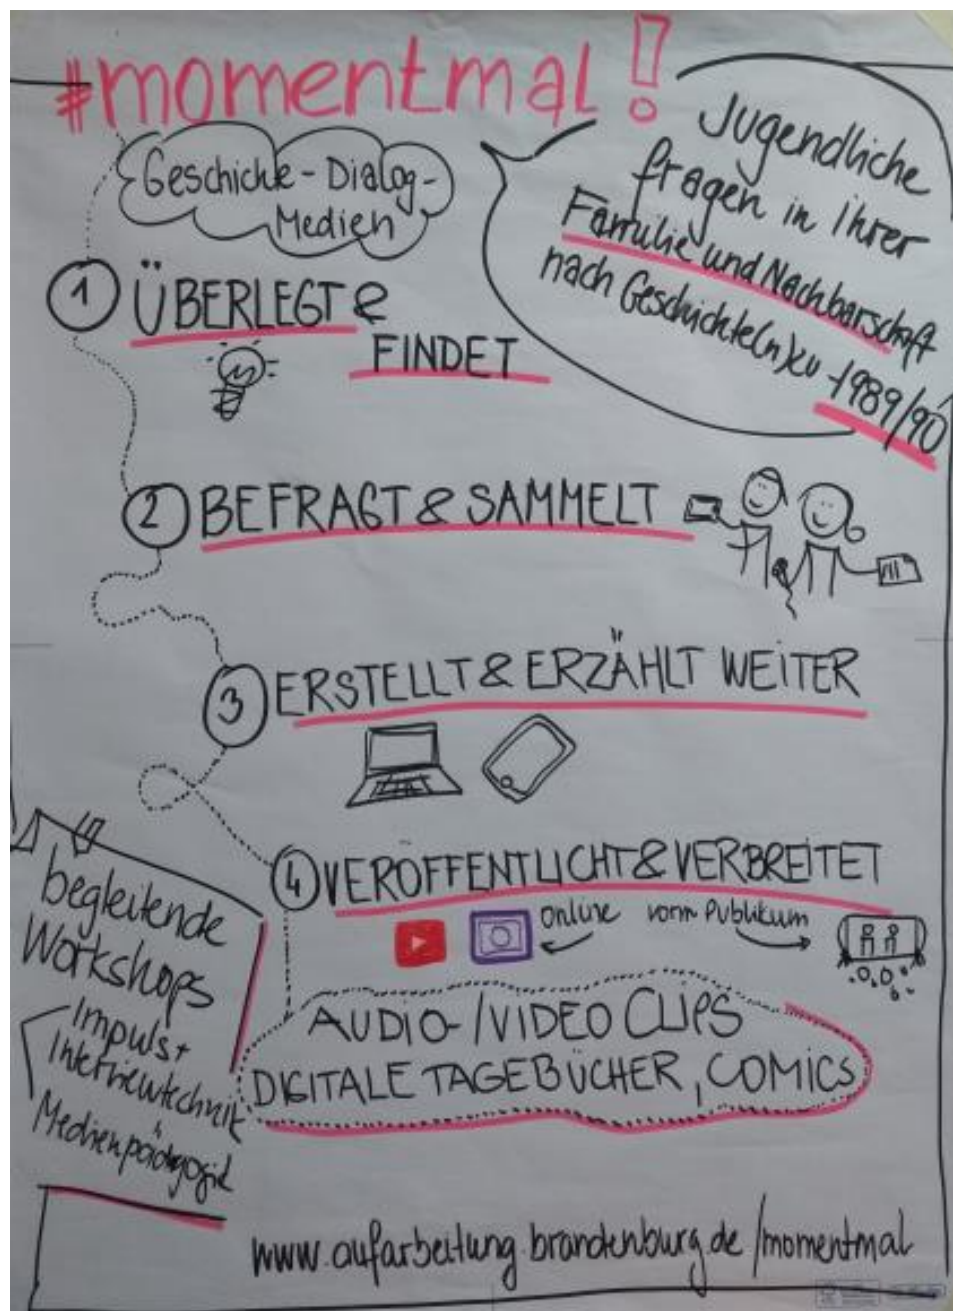 #momentmal!
Geschichte-Dialog-
Medien
Jugendliche
fragen in ihrer
Familie und Nachbarschaft
nach Geschichte(n) zu
1989/90
1 ÜBERLEGT &
FINDET
2 BEFRAGT & SAMMELT
3 ERSTELLT & ERZÄHLT WEITER
4 VERÖFFENTLICHT & VERBREITET
online vorm Publikum
AUDIO-/VIDEO CLIPS
DIGITALE TAGEBÜCHER, COMICS
begleitende
Workshops
Impuls+
Interviewtechnik
Medienpädagogik
www.aufarbeitung.brandenburg.de/momentmal